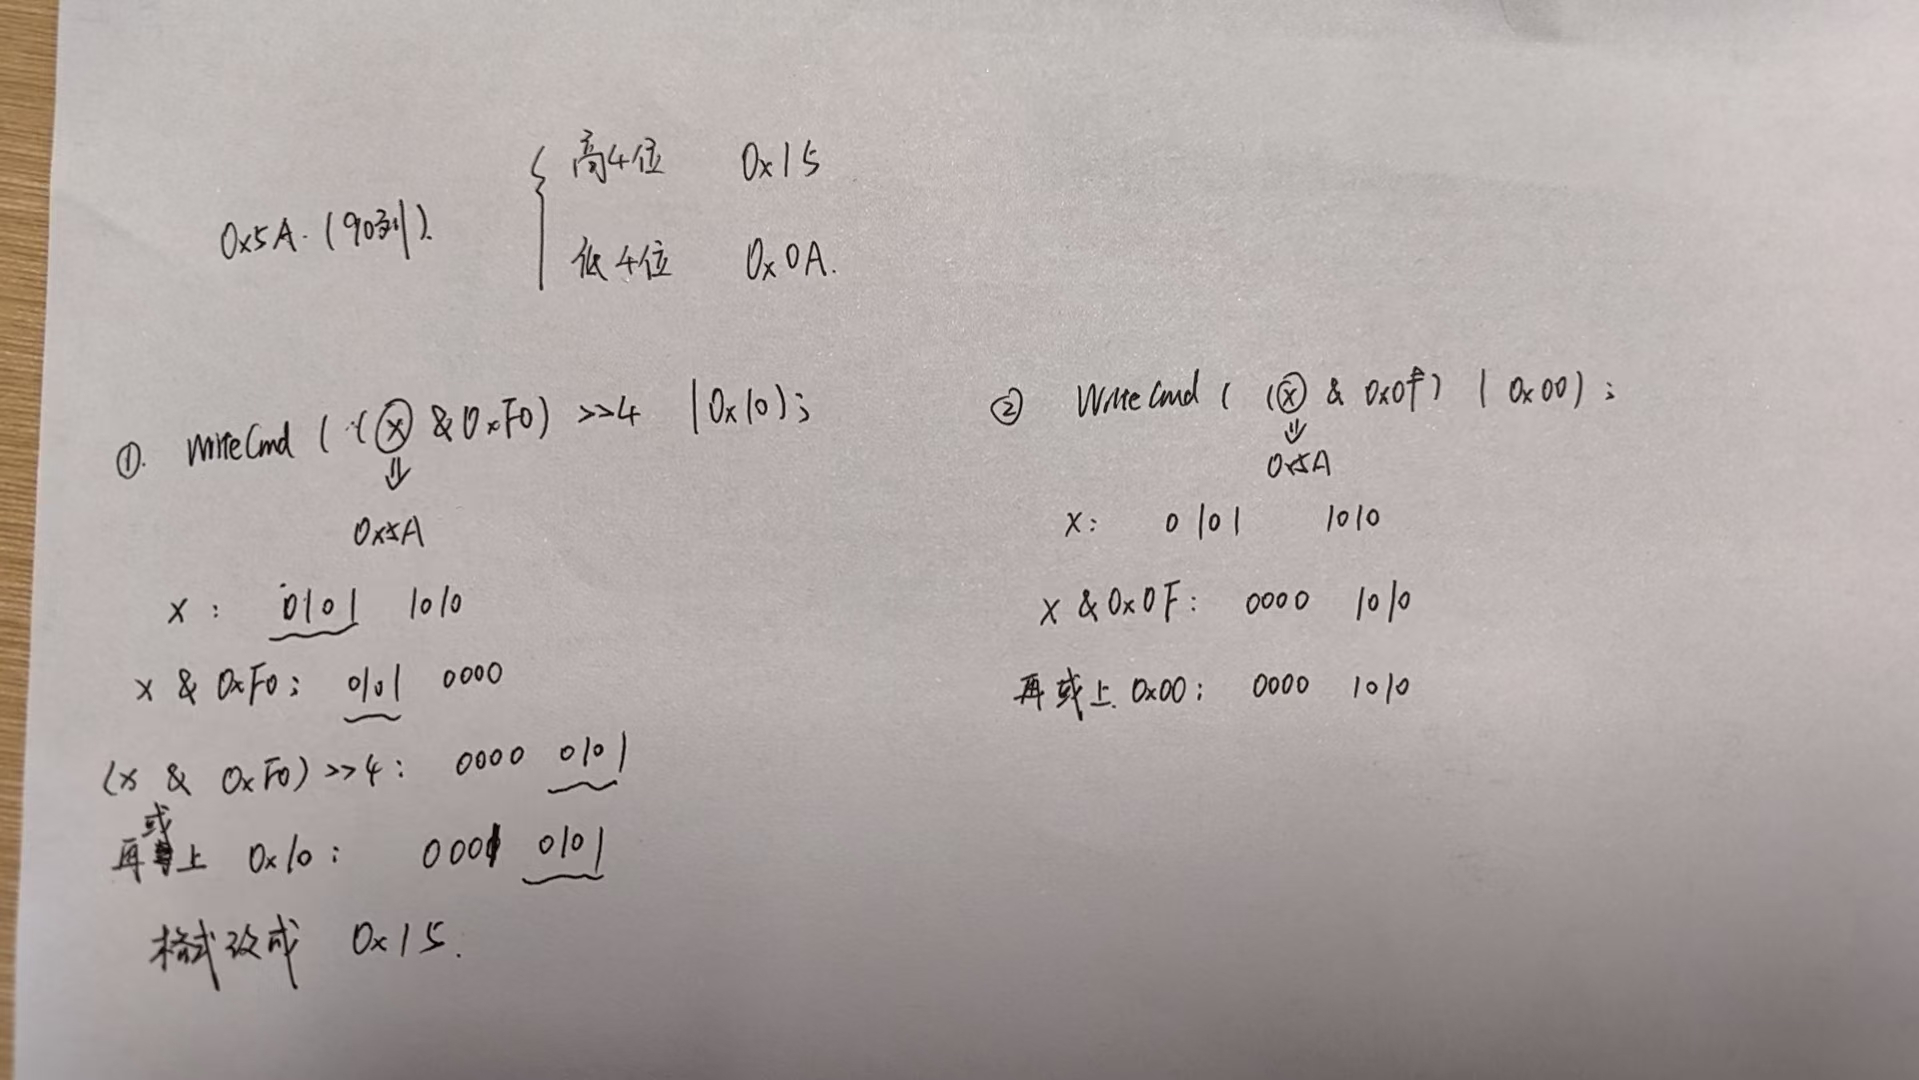 高4位 0x15
0x5A. (90列).
低4位 0x0A.
①. WriteCmd ( (x & 0xF0) >>4 | 0x10);
⇓
0x5A
x : 0101 1010
x & 0xF0: 0101 0000
(x & 0xF0) >>4: 0000 0101
再或上 0x10: 0001 0101
格式改成 0x15.
② WriteCmd ( (x & 0x0F) | 0x00);
⇓
0x5A
x: 0101 1010
x & 0x0F: 0000 1010
再或上. 0x00: 0000 1010